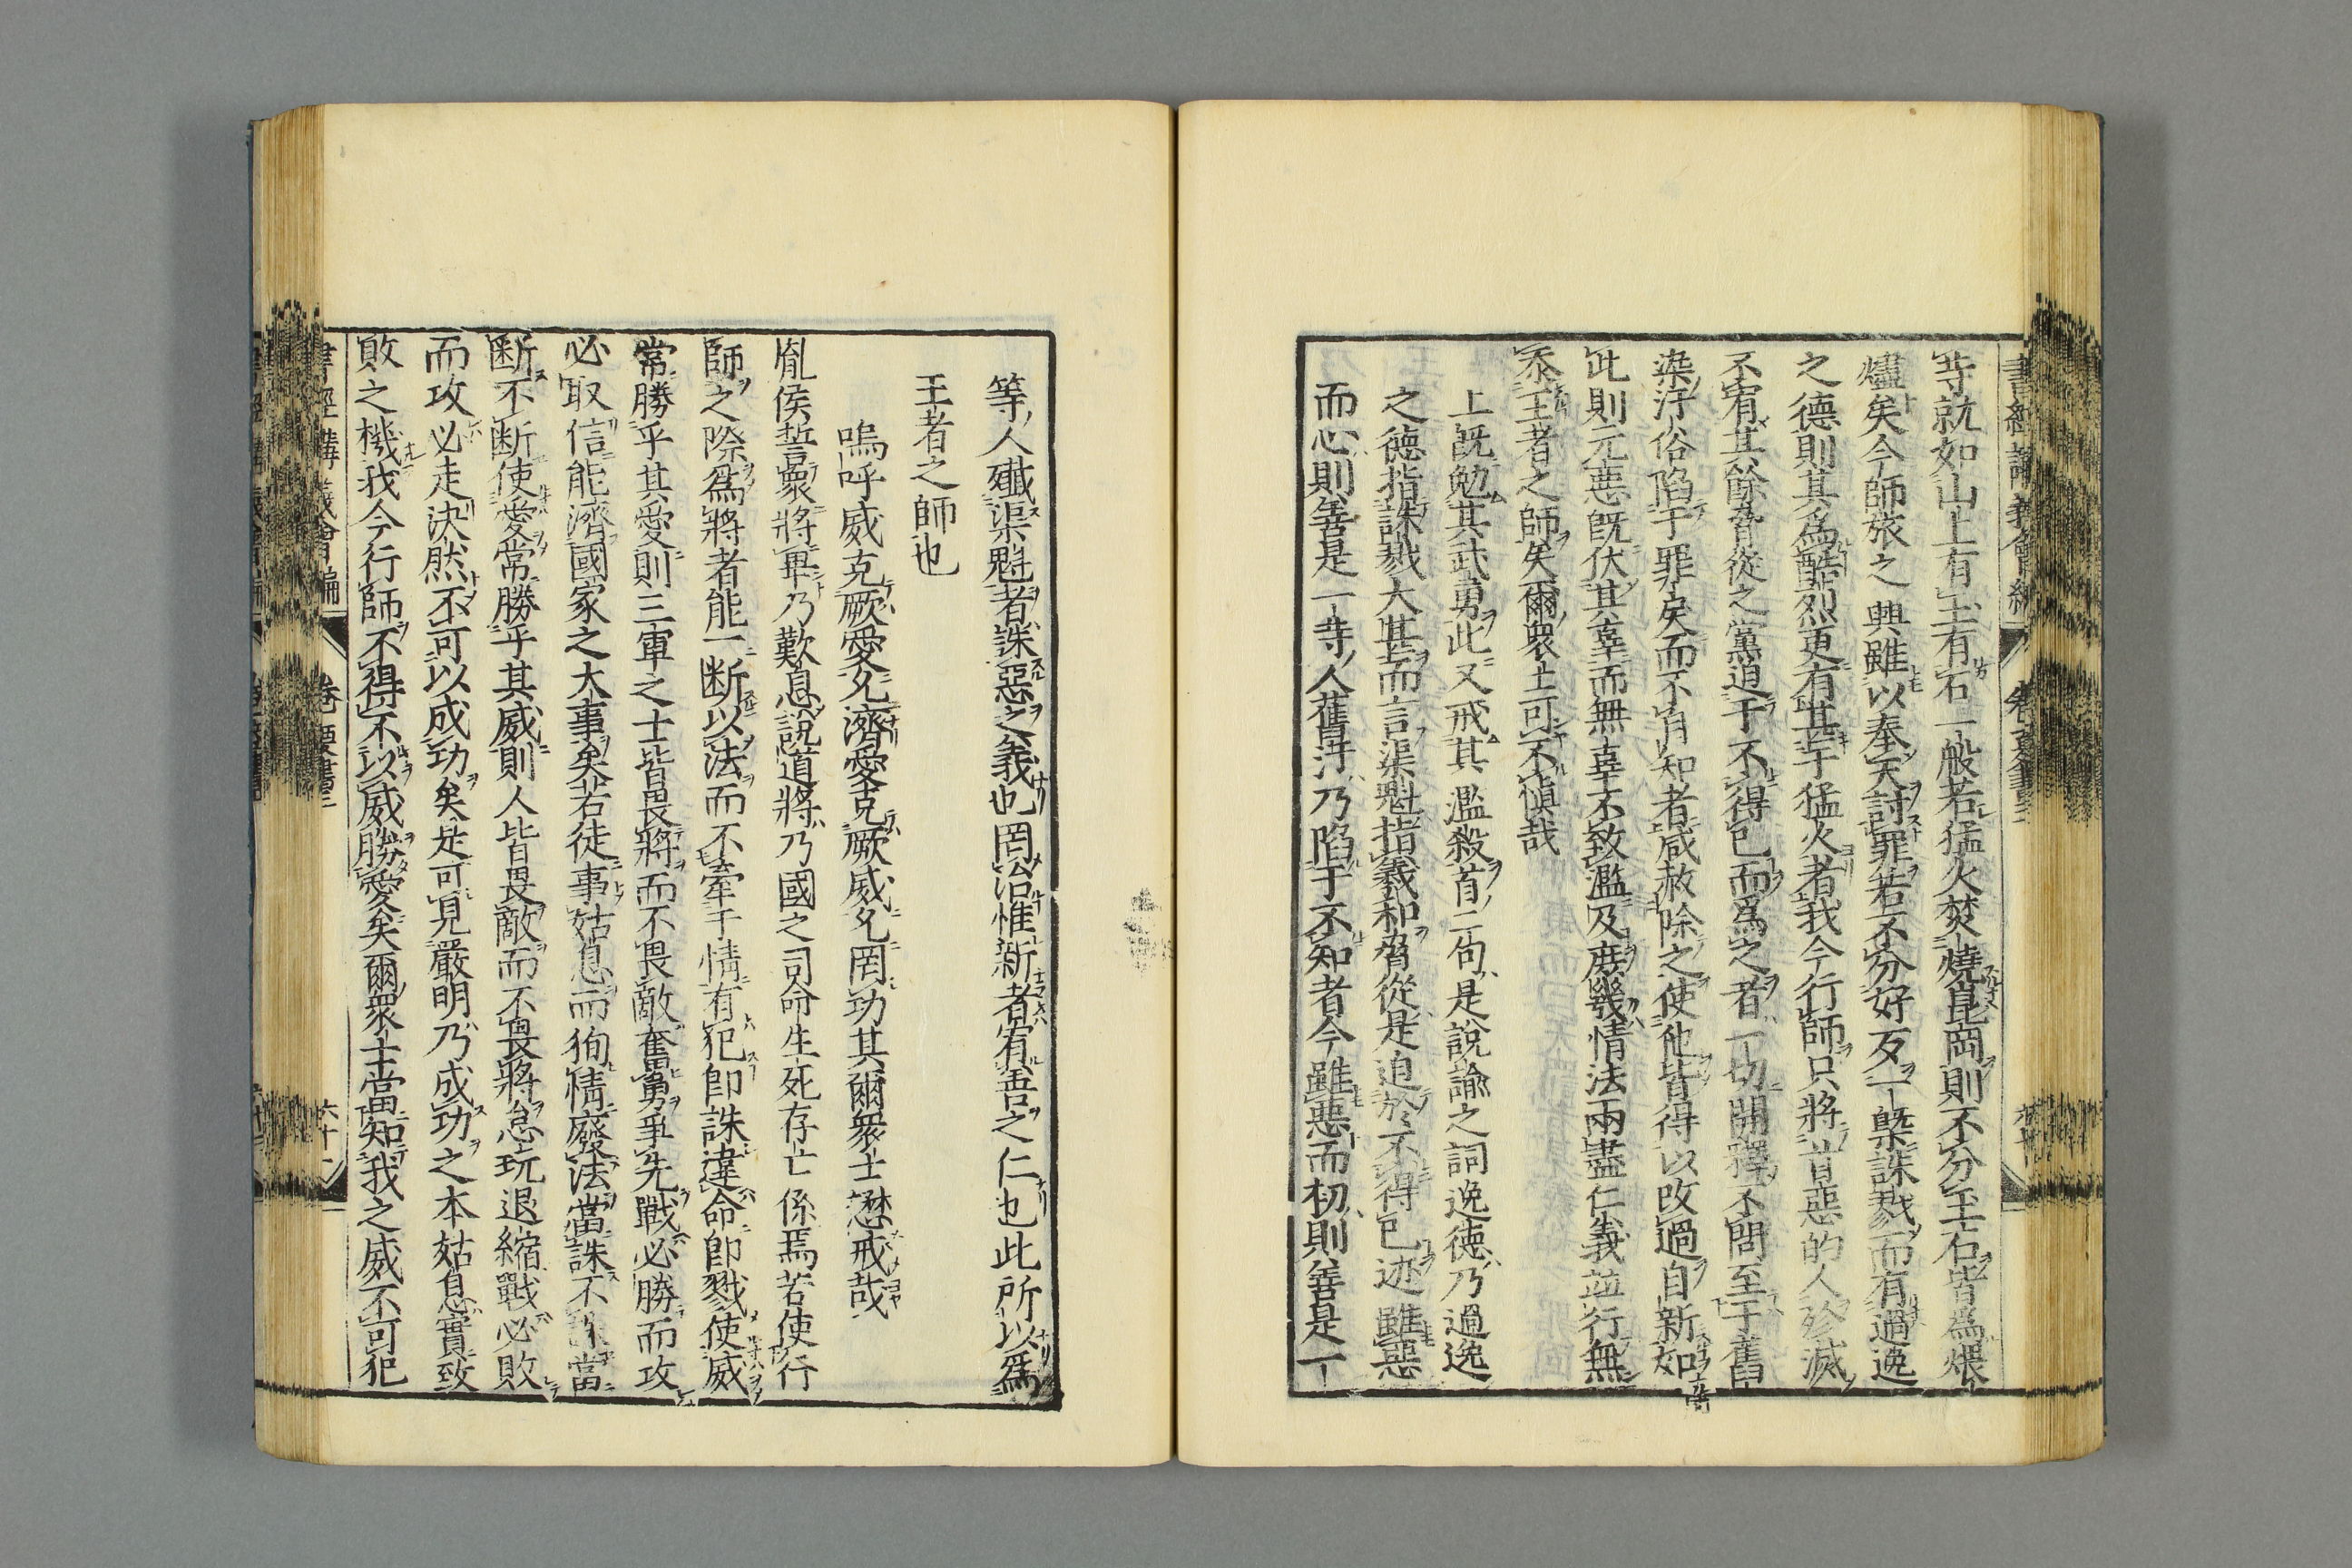 等就如山上有玉有石一般若猛火焚燒崑岡則不分玉石皆爲煨
燼矣今師旅之興雖以奉天討罪若不分好歹一槩誅戮而有過逸
之德則其爲酷烈更有甚于猛火者我今行師只將首惡的人殄滅
不宥其餘脅從之黨迫于不得已而爲之者一切開釋不問至于舊
染汙俗陷于罪戾而不自知者咸赦除之使他皆得以改過自新如
此則元惡旣伏其辜而無辜不致濫及庶幾情法兩盡仁義並行無
忝王者之師矣爾衆士可不慎哉
上旣勉其武勇此又戒其濫殺首二句是說諭之詞逸德乃過逸
之德指誅戮大甚而言渠魁指羲和脅從是迫於不得已迹雖惡
而心則善是一等人舊汙乃陷于不知者今雖惡而初則善是一
等人殲渠魁者誅惡之義也罔治惟新者宥善之仁也此所以爲
王者之師也
嗚呼威克厥愛允濟愛克厥威允罔功其爾衆士懋戒哉
胤侯誓衆將畢乃歎息說道將乃國之司命生死存亡係焉若使行
師之際爲將者能一断以法而不牽于情有犯卽誅違命卽戮使威
常勝乎其愛則三軍之士皆畏將而不畏敵奮勇爭先戰必勝而攻
必取信能濟國家之大事矣若徒事姑息而狥情廢法當誅不誅當
断不断使愛常勝乎其威則人皆畏敵而不畏將怠玩退縮戰必敗
而攻必走決然不可以成功矣是可見嚴明乃成功之本姑息實致
敗之機我今行師不得不以威勝愛矣爾衆士當知我之威不可犯
書經講義會編 卷 夏書三 六十一